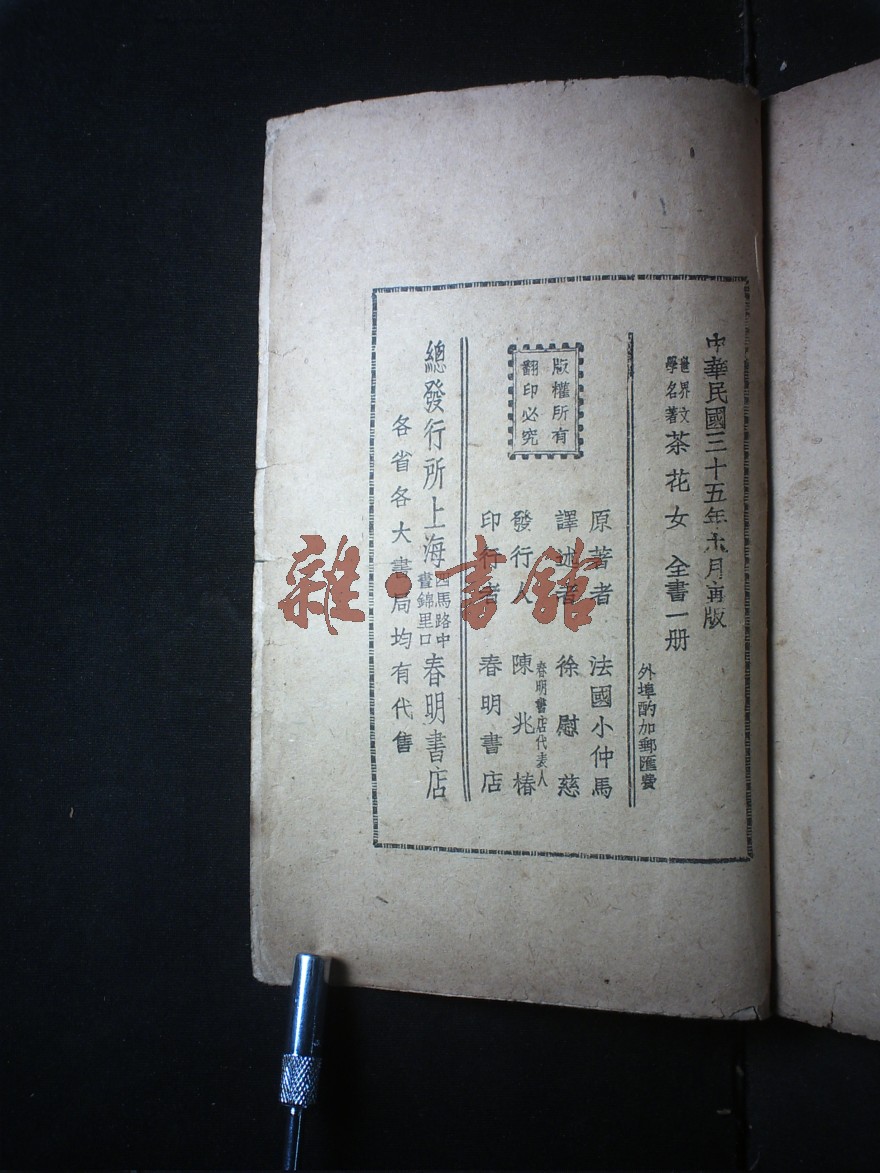 中華民國三十五年十月再版
世界文學名著 茶花女 全書一册
外埠酌加郵匯費
版權所有
翻印必究
原著者 法國小仲馬
譯述者 徐慰慈
發行人 春明書店代表人 陳兆椿
印行者 春明書店
總發行所上海四馬路中晝錦里口春明書店
各省各大書局均有代售
雜·書館